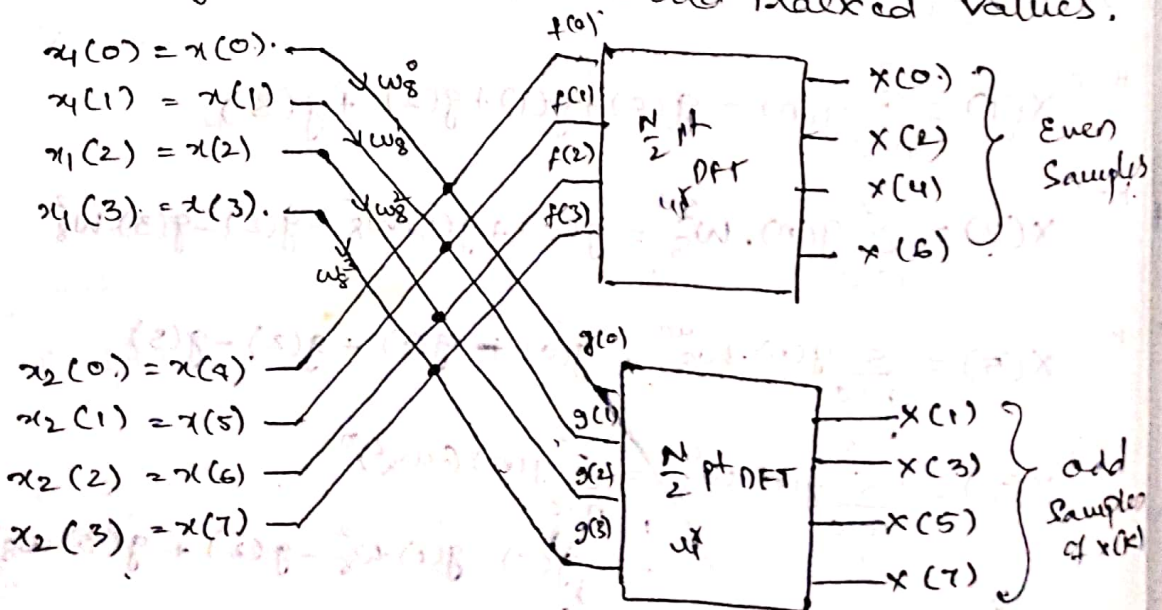 Indexed Values.
x1(0) = x(0).
x1(1) = x(1)
x1(2) = x(2)
x1(3) = x(3).
w8^0
w8^1
w8^2
w8^3
x2(0) = x(4)
x2(1) = x(5)
x2(2) = x(6)
x2(3) = x(7)
f(0)
f(1)
f(2)
f(3)
N/2 pt
DFT
X(0)
X(2)
X(4)
X(6)
Even
Samples
g(0)
g(1)
g(2)
g(3)
N/2 pt DFT
X(1)
X(3)
X(5)
X(7)
odd
Samples
of x(k)